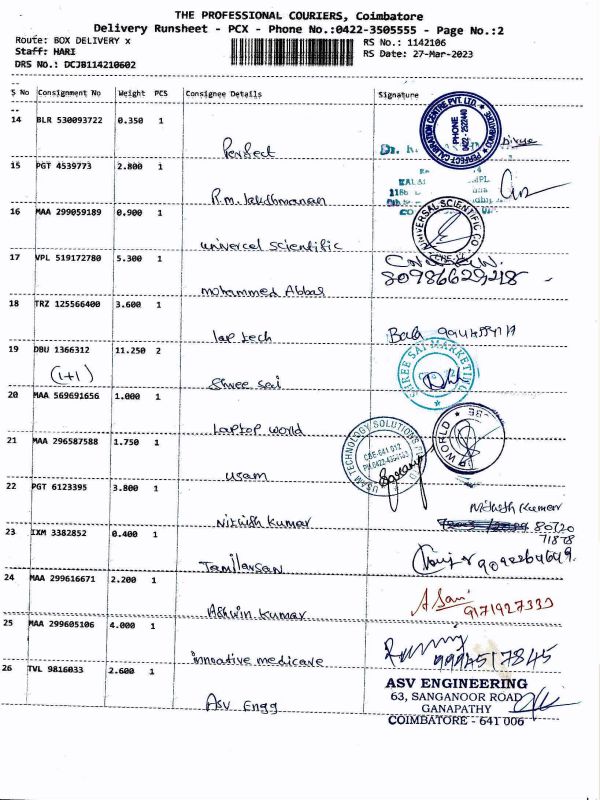 THE PROFESSIONAL COURIERS, Coimbatore
Delivery Runsheet - PCX - Phone No.:0422-3505555 - Page No.:2
Route: BOX DELIVERY x
RS No.: 1142106
Staff: HARI
RS Date: 27-Mar-2023
DRS No.: DCJB114210602
S No Consignment No Weight PCS Consignee Details Signature
14 BLR 530093722 0.350 1
Perfect
PERFECT CALIBRATION CENTRE PVT. LTD.
COIMBATORE
PHONE
0422 - 2522440
15 PGT 4539773 2.800 1
R.m. lakshmanan
16 MAA 299059189 0.900 1
universal scientific
UNIVERSAL SCIENTIFIC CO.
17 VPL 519172780 5.300 1
mohammed Abbas
8098662-9218
18 TRZ 125566400 3.600 1
lap tech
Bala
19 DBU 1366312 11.250 2
(1+1)
Shree sai
SHREE SAI MARKETING
20 MAA 569691656 1.000 1
Laptop world
P WORLD
CBE
21 MAA 296587588 1.750 1
usam
USAM TECHNOLOGY SOLUTIONS
CBE-641 012
22 PGT 6123395 3.800 1
Nithish Kumar
Nithish Kumar
80720
71878
23 IXM 3382852 0.400 1
Tamilarsan
24 MAA 299616671 2.200 1
Ashwin Kumar
9171927333
25 MAA 299605106 4.000 1
innoative medicare
9994517845
26 TVL 9816033 2.600 1
Asv Engg
ASV ENGINEERING
63, SANGANOOR ROAD
GANAPATHY
COIMBATORE - 641 006